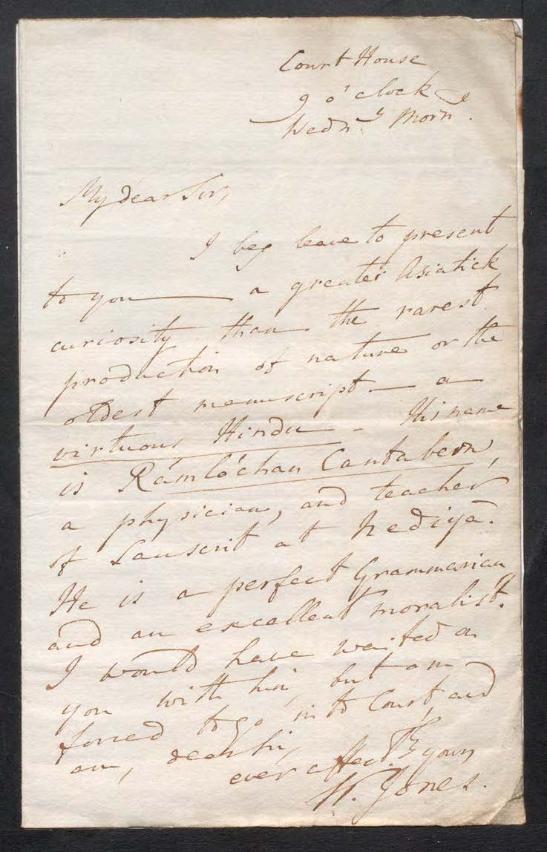 Court House
9 o'clock
Wedn.y Morn.
My dear Sir,
I beg leave to present
to you — a greater Asiatick
curiosity than the rarest
production of nature or the
oldest manuscript — a
virtuous Hindu — His name
is Rámlóchan Cantabern,
a physician, and teacher
of Sanscrit at Nediyà.
He is a perfect Grammarian
and an excellent moralist.
I would have waited on
you with him, but am
forced to go into Court, and
am, dear Sir,
ever affect.ly yours
W. Jones.